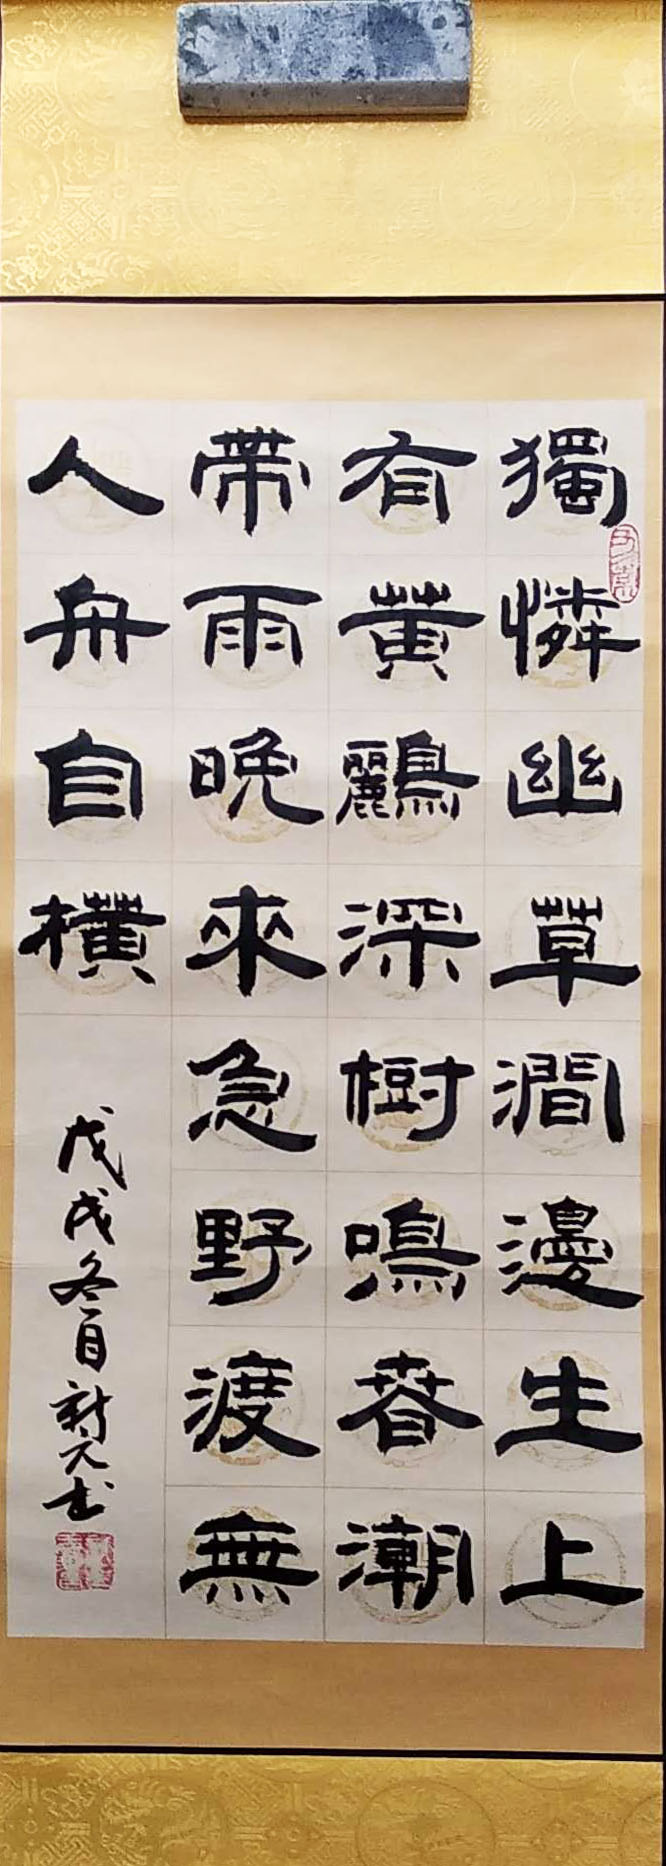 獨憐幽草澗邊生上
有黃鸝深樹鳴春潮
帶雨晚來急野渡無
人舟自橫
戊戌冬月新久书